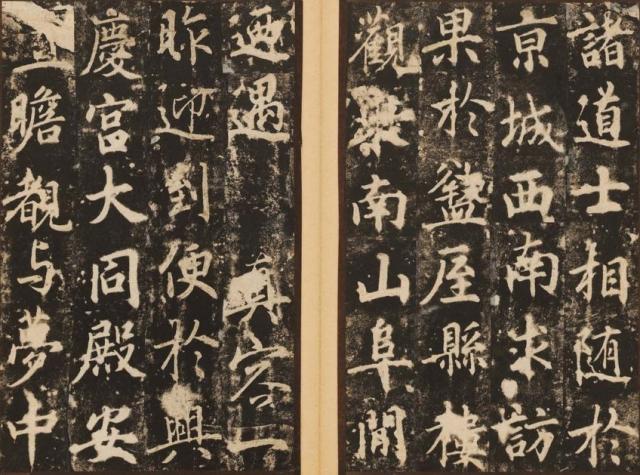 諸道士相随於
亰城西南求訪
果於盩厔縣樓
觀東南山阜間
迺遇 真容一
昨迎到便於興
慶宮大同殿安
瞻覩与夢中